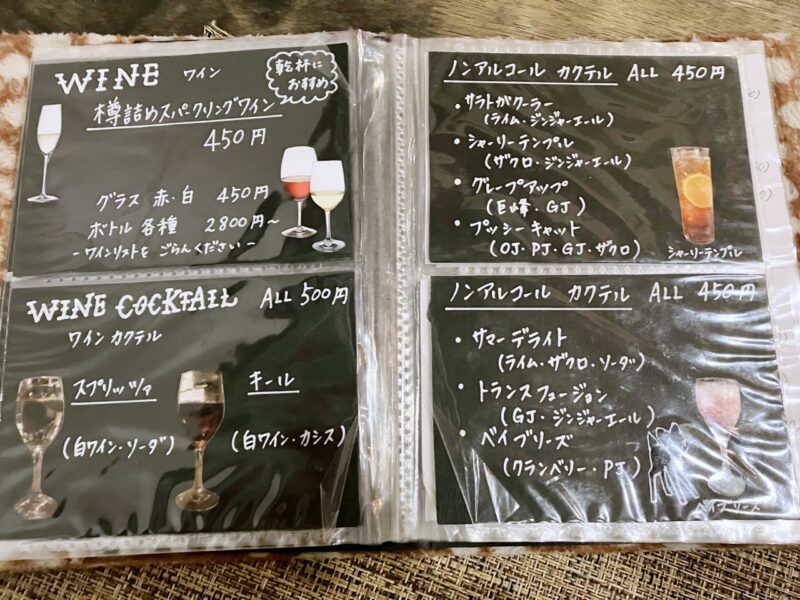 WINE ワイン
乾杯に
おすすめ
樽詰めスパークリングワイン
450円
グラス 赤・白 450円
ボトル 各種 2800円~
-ワインリストを ごらんください-
WINE COCKTAIL ALL 500円
ワイン カクテル
スプリッツァ
(白ワイン・ソーダ)
キール
(白ワイン・カシス)
ノンアルコール カクテル ALL 450円
・サラトガクーラー
(ライム・ジンジャーエール)
・シャーリーテンプル
(ザクロ・ジンジャーエール)
・グレープアップ
(巨峰・GJ)
・プッシーキャット
(OJ・PJ・GJ・ザクロ)
シャーリーテンプル
ノンアルコール カクテル ALL 450円
・サマーデライト
(ライム・ザクロ・ソーダ)
・トランスフュージョン
(GJ・ジンジャーエール)
・ベイブリーズ
(クランベリー・PJ)
ベイブリーズ